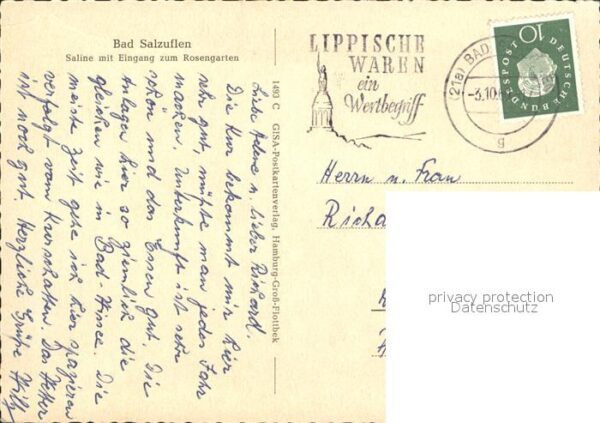 Bad Salzuflen
Saline mit Eingang zum Rosengarten
Liebe Helene u. lieber Richard.
Die Kur bekommt mir hier
sehr gut, müßte man jedes Jahr
machen. Unterkunft ist sehr
schön und das Essen gut. Die
Anlagen hier so ziemlich die
gleichen wie in Bad-
meiste Zeit gehe ich hier spazieren
verfolgt vom Kurschatten. Das Wetter
ist noch gut. Herzliche Grüße Willy
1493 C GISA-Postkartenverlag, Hamburg-Groß-Flottbek
LIPPISCHE
WAREN
ein
Wertbegriff
(21a) BAD
-3.10.
g
10
DEUTSCHE BUNDESPOST
Herrn u. Frau
Richa
privacy protection
Datenschutz